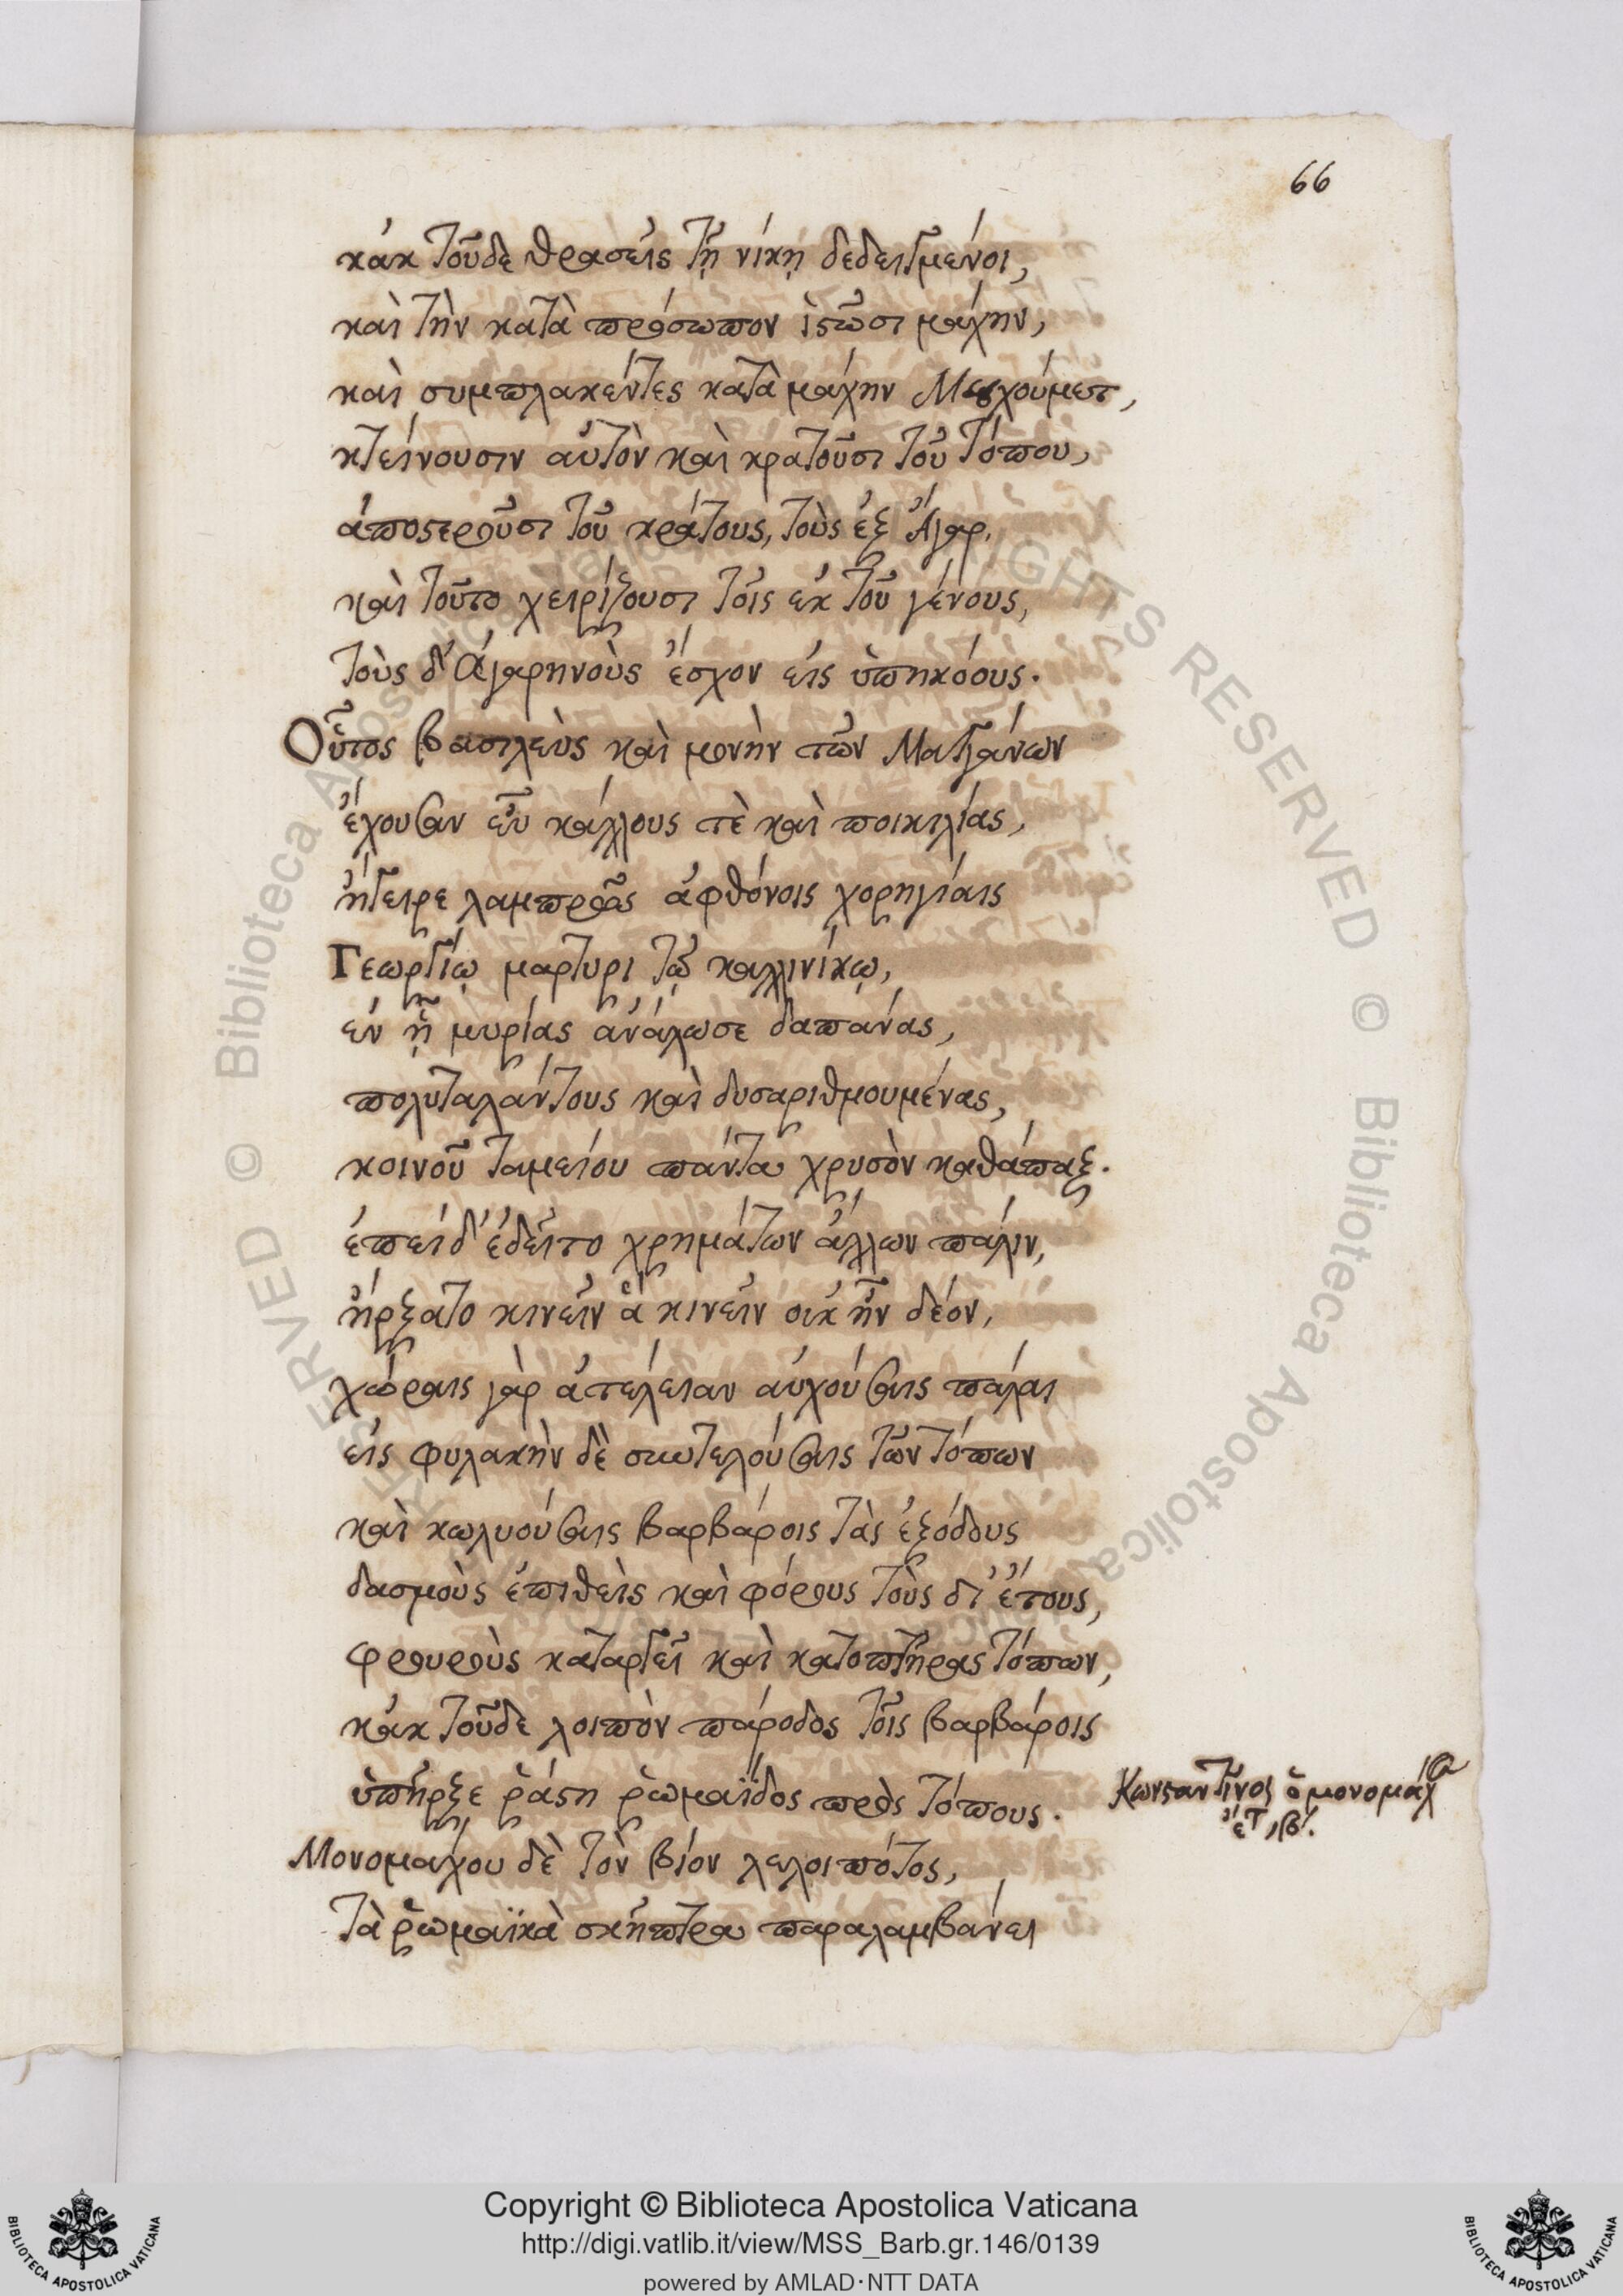 66
κἀκ τοῦδε θρασεῖς τῇ νίκῃ δεδειγμένοι,
καὶ τὴν κατὰ πρόσωπον ἱστῶσι μάχην,
καὶ συμπλακέντες κατὰ μάχην Μουχούμετ,
κτείνουσιν αὐτὸν καὶ κρατοῦσι τοῦ τόπου,
ἀποστεροῦσι τοῦ κράτους, τοὺς ἐξ Ἄγαρ.
καὶ τοῦτο χειρίζουσι τοῖς ἐκ τοῦ γένους,
τοὺς δ' Ἀγαρηνοὺς ἔσχον εἰς ὑπηκόους.
Οὗτος βασιλεὺς καὶ μονὴν τῶν Μαγγάνων
ἔχουσαν εὖ κάλλους τὲ καὶ ποικιλίας,
ἤγειρε λαμπρῶς ἀφθόνοις χορηγίαις
Γεωργίῳ μάρτυρι τῷ καλλινίκῳ,
ἐν ᾗ μυρίας ἀνάλωσε δαπάνας,
πολυταλάντους καὶ δυσαριθμουμένας,
κοινοῦ ταμείου πάντα χρυσὸν καθάπαξ.
ἐπεὶ δ' ἐδεῖτο χρημάτων ἄλλων πάλιν,
ἤρξατο κινεῖν ἃ κινεῖν οὐκ ἦν δέον,
χώραις γὰρ ἀτέλειαν αὐχούσαις πάλαι
εἰς φυλακὴν δὲ συντελούσαις τῶν τόπων
καὶ κωλυούσαις βαρβάροις τὰς ἐξόδους
δασμοὺς ἐπιθεὶς καὶ φόρους τοὺς δι' ἔτους,
φρουροὺς καταργεῖ καὶ κατοπτῆρας τόπων,
κἀκ τοῦδε λοιπὸν πάροδος τοῖς βαρβάροις
ὑπῆρξε ῥάστη ῥωμαΐδος πρὸς τόπους.
Κωνσταντῖνος ὁ μονομάχ
ἔτ ιβ΄.
Μονομάχου δὲ τὸν βίον λελοιπότος,
τὰ ῥωμαϊκὰ σκῆπτρα παραλαμβάνει
© Biblioteca Apostolica Vaticana ALL RIGHTS RESERVED © Biblioteca Apostolica
Copyright © Biblioteca Apostolica Vaticana
http://digi.vatlib.it/view/MSS_Barb.gr.146/0139
powered by AMLAD·NTT DATA
BIBLIOTECA APOSTOLICA VATICANA
BIBLIOTECA APOSTOLICA VATICANA